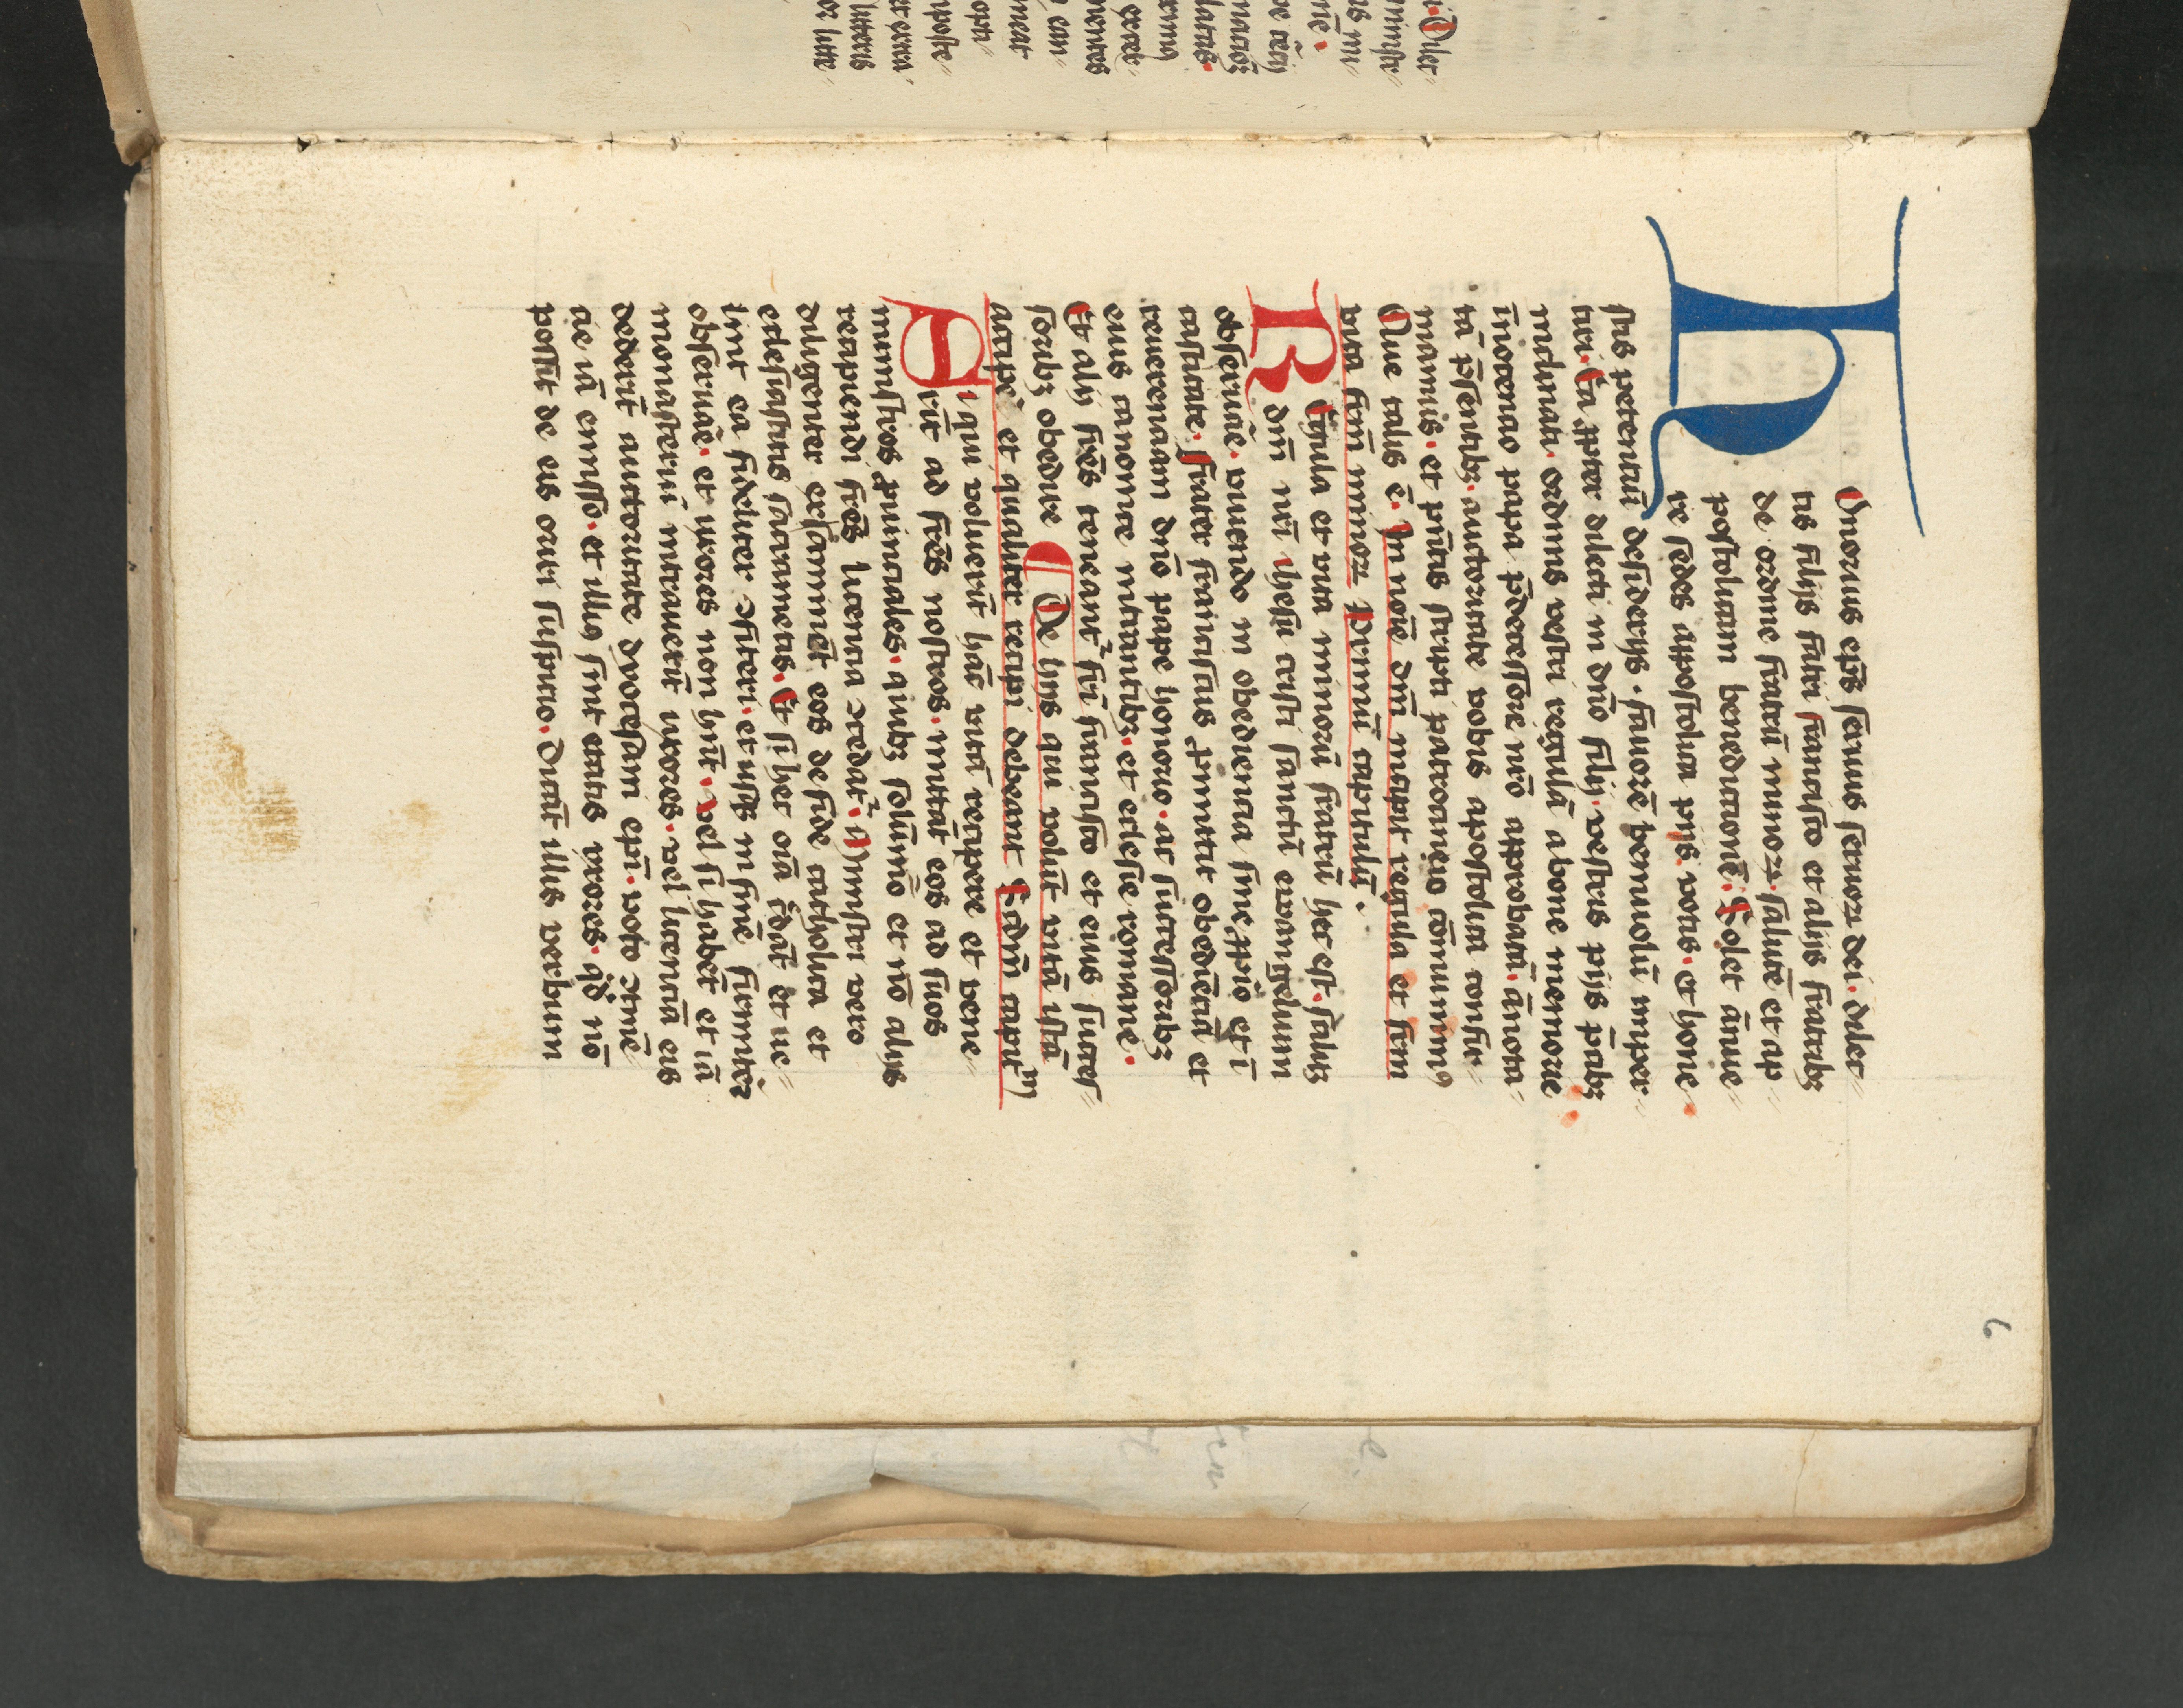 Honorius ep̄s seruus seruoꝝ dei. dilec⸗
tis filijs fratri francisco et alijs fratribꝫ
de ordine fratrū minoꝝ. salutē et ap⸗
postolicam benedictionē. Solet ānue⸗
re sedes appostolica pijs votis. et hone⸗
stis petentiū desiderijs. fauorē beniuolū imper⸗
tiri. Ea ꝓpter dilecti in dn̄o filij. vestris pijs p̄cibꝫ
inclinati. ordinis vestri regulā a bone memorie
īnocencio papa p̄decessore nr̄o approbatā. ānota⸗
tā p̄sentibꝫ. auctoritate vobis apostolica confir⸗
mamus. et p̄ntis scripti patrocineo cōmunimꝰ
Que talis ē. In noīe dn̄i incipit regula et
vita frm̄ minoꝝ Primū capitulū.
Regula et vita minorū fratrū hec est. scilicꝫ
dn̄i nr̄i ihesu cristi sanctū ewangelium
obseruare. viuendo in obediencia sine ꝓpio et ī
castitate. frater franciscus ꝓmittit obedienciā et
reuerenciam dn̄o pape honorio. ac successoribꝫ
eius canonice intrantibꝫ. et ecclesie romane.
Et alij fr̄es teneant᷑ fr̄i francisco et eius succes⸗
soribꝫ obedire ¶ De hiis qui volūt vitā istā
accipe᷑ et qualiter recipi debeant Secūdū capitm̄
Si qui voluerīt hāc vitā recipere et vene⸗
rīt ad fr̄es nostros. mittāt eos ad suos
ministros ꝓuinciales. quibꝫ solūmō et nō alijs
recipiendi fr̄es licencia ↄcedat᷑. Ministri vero
diligenter examinēt eos de fide catholica et
ecclesiasticis sacramentis. Et si hec oīa c̄dāt et ue⸗
lint ea fideliter ↄfiteri. et usqꝫ in finē firmit᷑
obseruare. et uxores non hn̄t. vel si habēt et iā
monasteriū intrauerīt uxores. vel licenciā eis
dederīt auctoritate dyocesani ep̄i. voto ↄtinē⸗
cie iā emisso. et illiꝰ sint etatis uxores. qd̓ nō
possit de eis oriri suspicio. Dicāt illis verbum
6